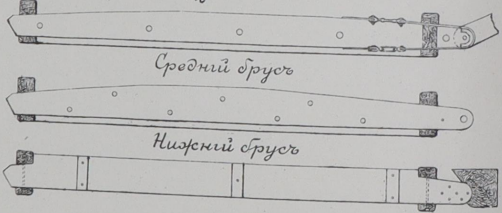 Средній брусъ
Нижній брусъ